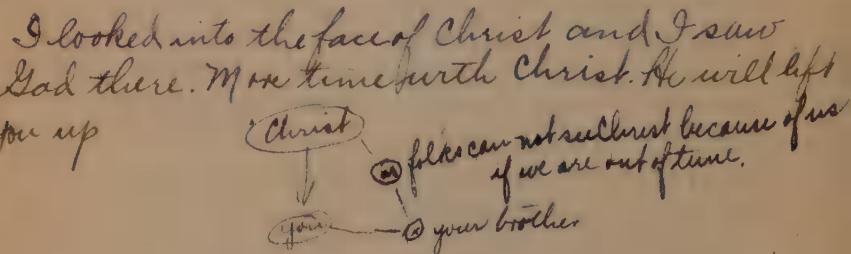 I looked into the face of Christ and I saw
God there. More time with Christ. He will lift
you up
Christ
folks can not see Christ because of us
if we are out of tune.
you
your brother